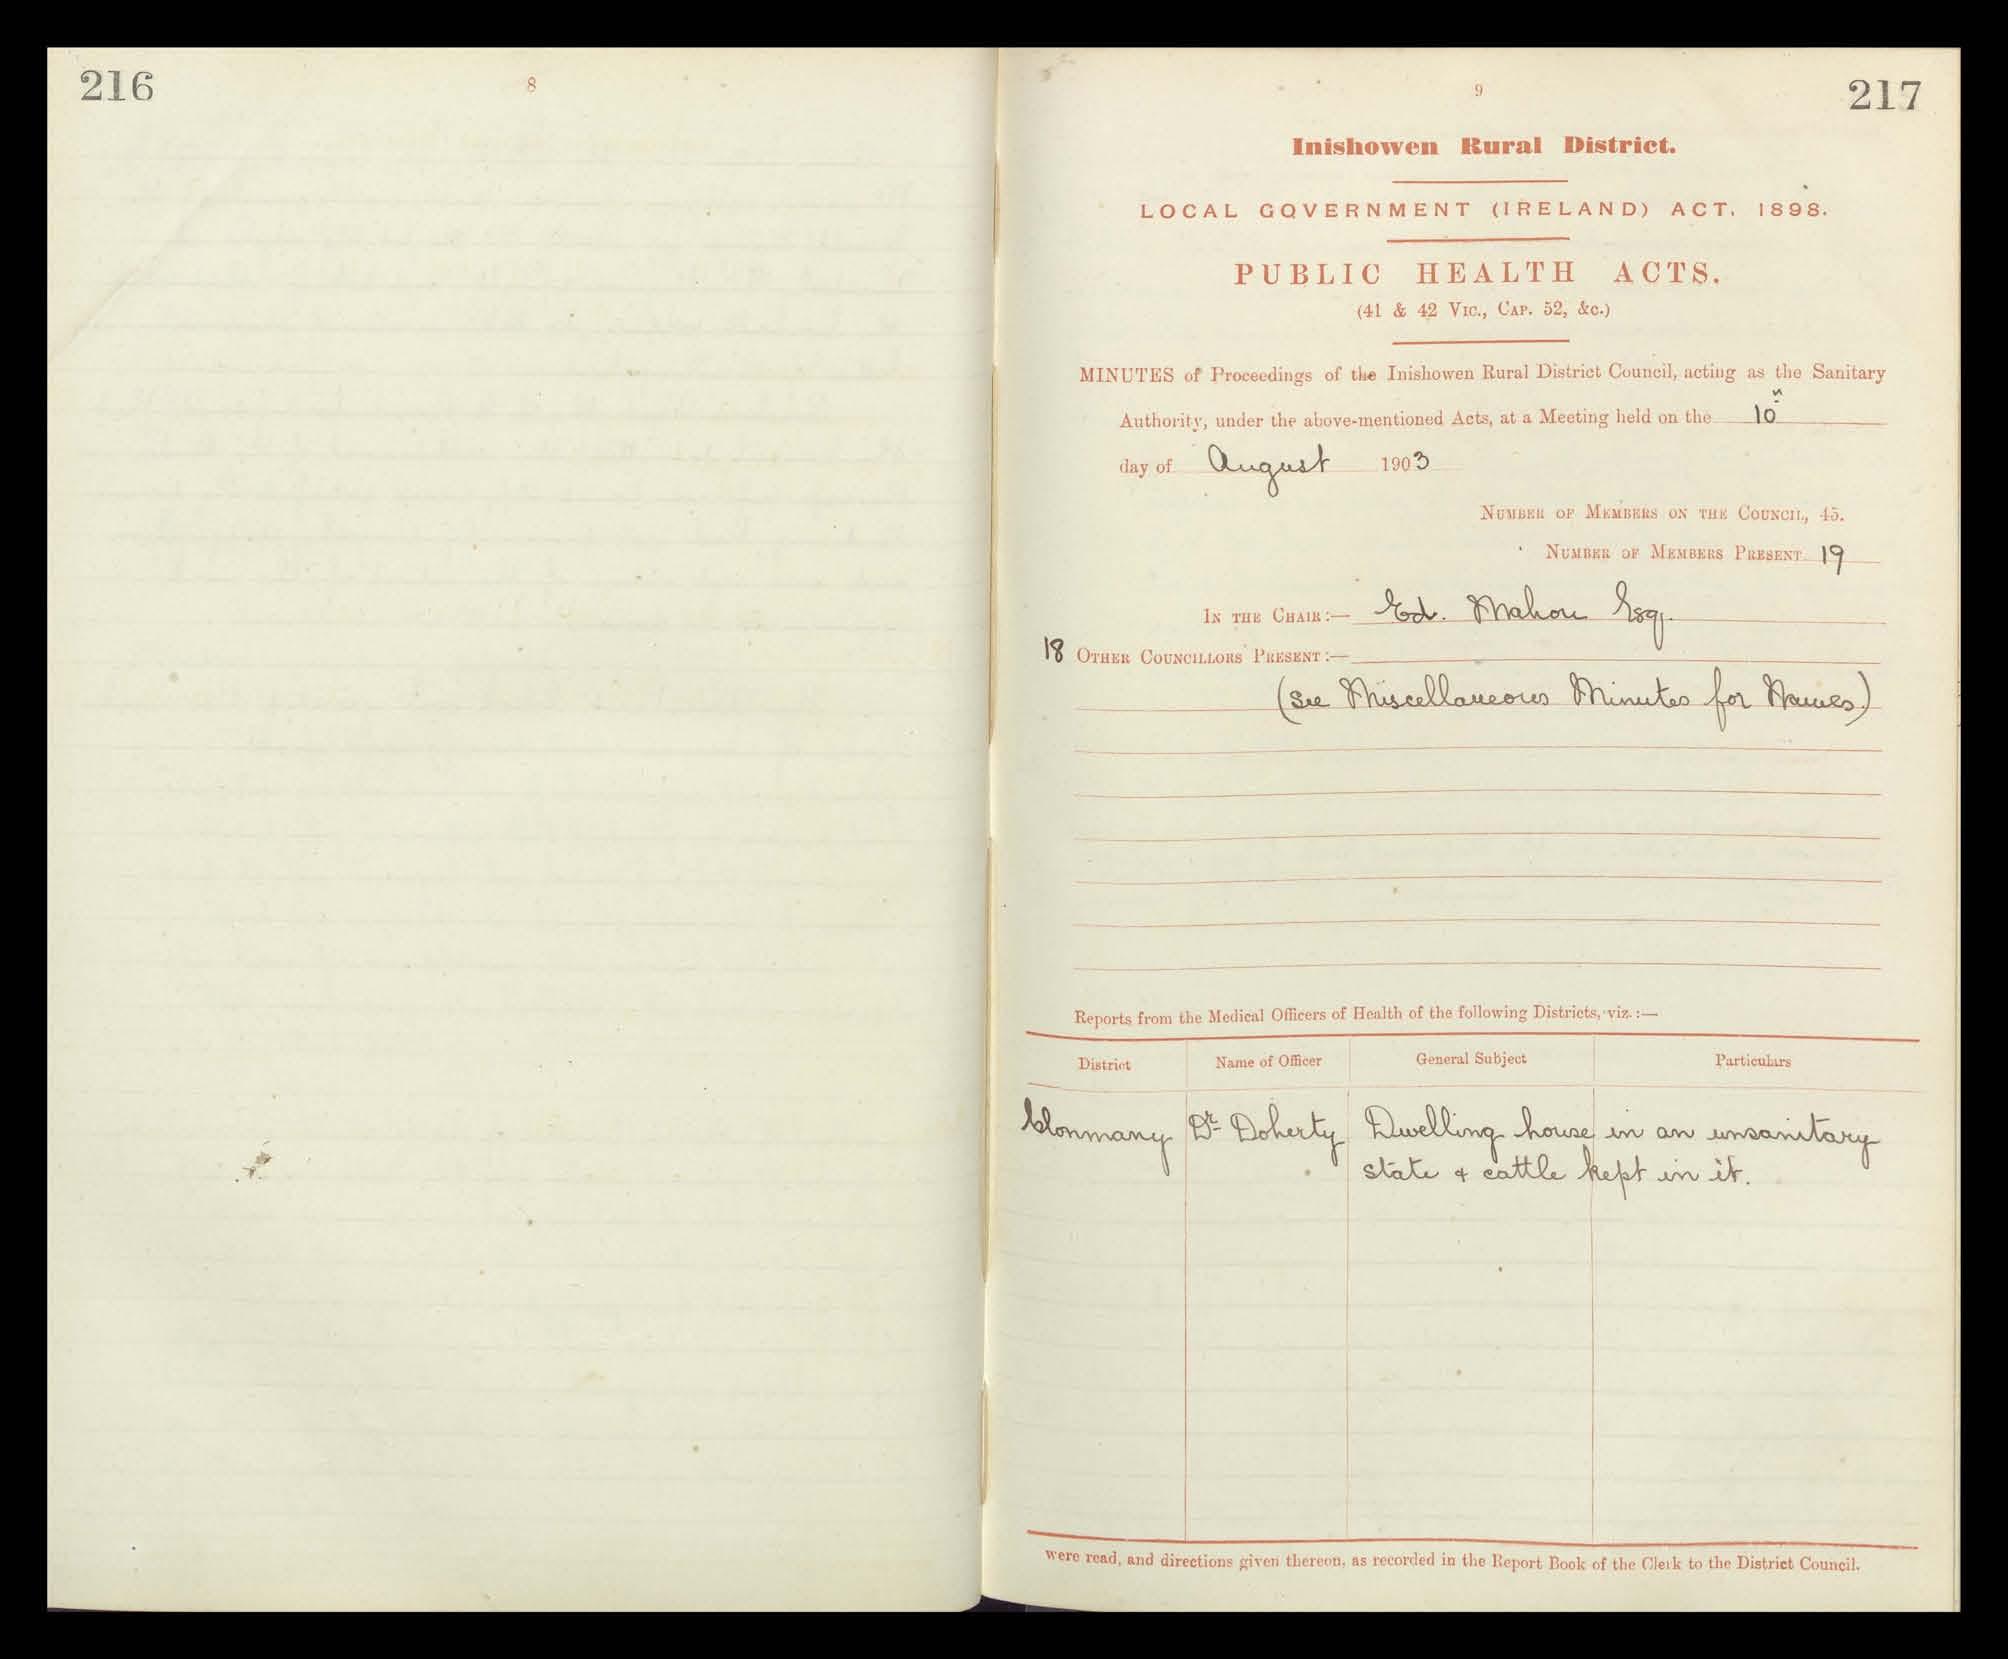 216
8
9
217
Inishowen Rural District.
LOCAL GOVERNMENT (IRELAND) ACT, 1898.
PUBLIC HEALTH ACTS.
(41 & 42 Vic., Cap. 52, &c.)
MINUTES of Proceedings of the Inishowen Rural District Council, acting as the Sanitary
Authority, under the above-mentioned Acts, at a Meeting held on the 10th
day of August 1903
Number of Members on the Council, 45.
Number of Members Present 19
In the Chair:— Ed. Mahon Esq.
18 Other Councillors Present:—
(See Miscellaneous Minutes for Names.)
Reports from the Medical Officers of Health of the following Districts, viz.:—
District Name of Officer General Subject Particulars
Clonmany Dr Doherty Dwelling house in an unsanitary
state & cattle kept in it.
were read, and directions given thereon, as recorded in the Report Book of the Clerk to the District Council.